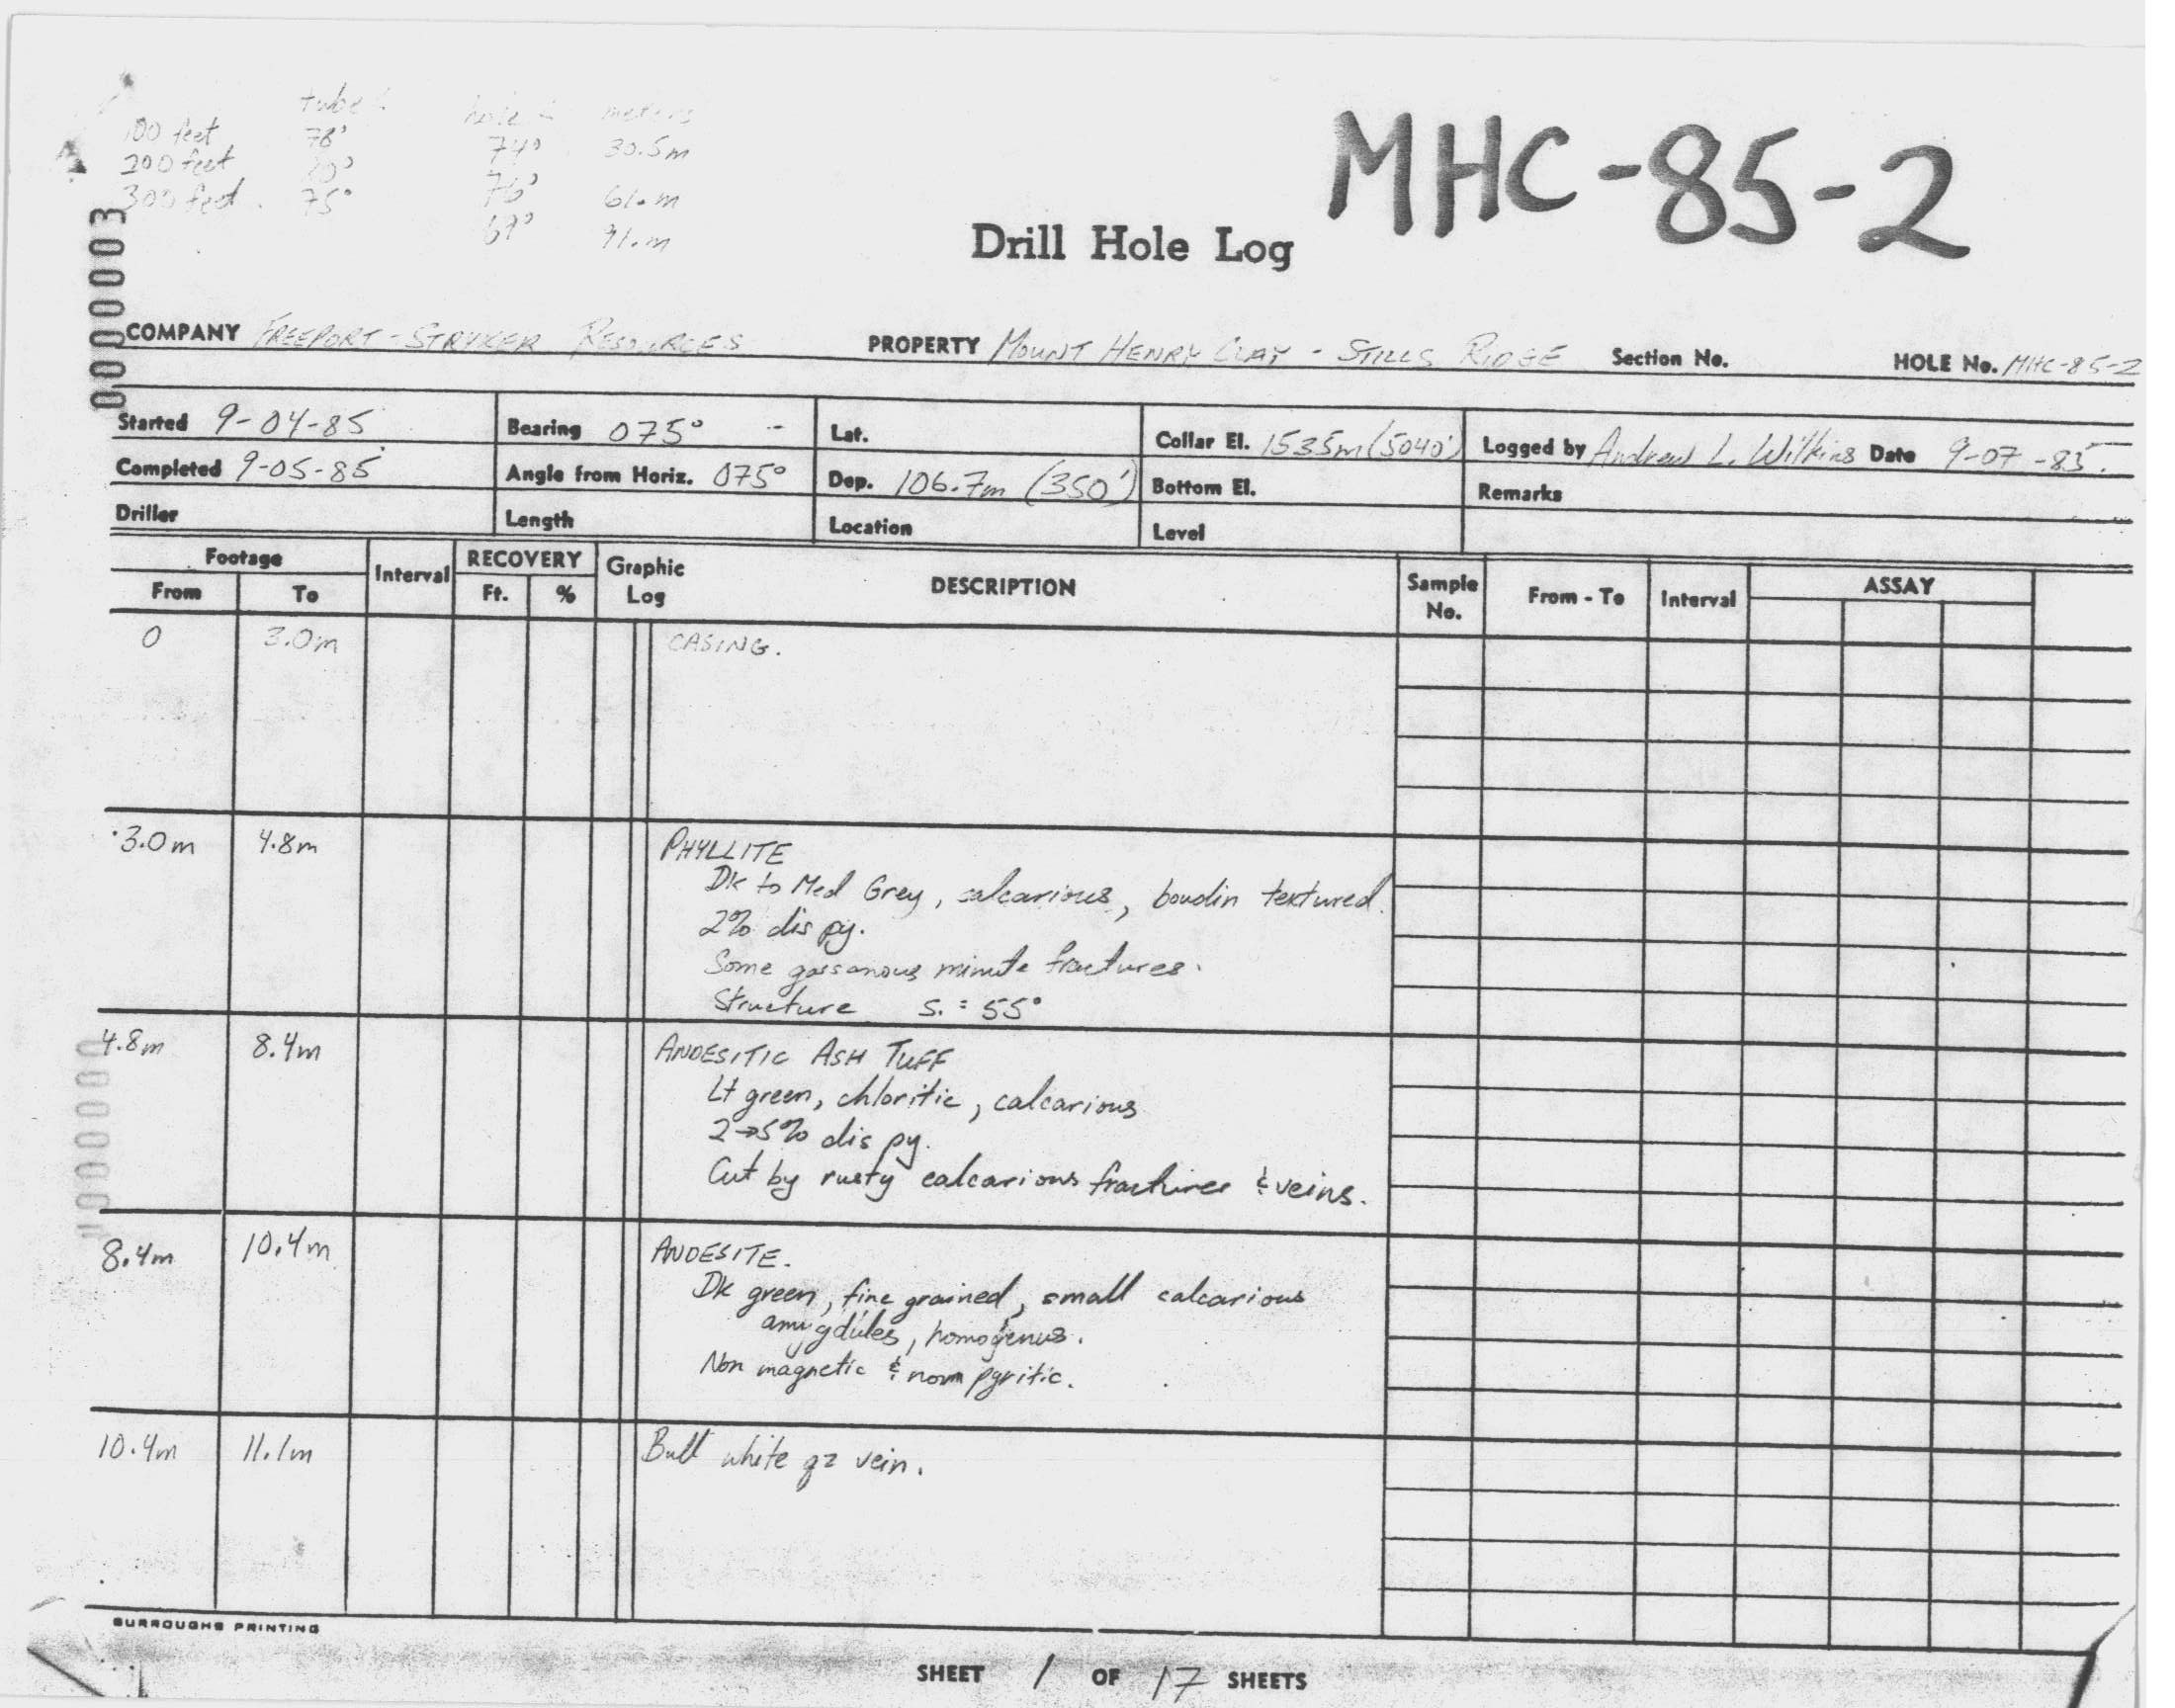 tube hole meters
100 feet 78° 74° 30.5m
200 feet 76° 61.m
300 feet 75° 67° 91.m
MHC-85-2
Drill Hole Log
0000003
COMPANY FREEPORT-STRYKER RESOURCES PROPERTY MOUNT HENRY CLAY - STILLS RIDGE Section No. HOLE No. MHC-85-2
Started 9-04-85 Bearing 075° Lat. Collar El. 1535m (5040') Logged by Andrew L. Wilkins Date 9-07-85.
Completed 9-05-85 Angle from Horiz. 075° Dep. 106.7m (350') Bottom El. Remarks
Driller Length Location Level
Footage Interval RECOVERY Graphic Log DESCRIPTION Sample No. From - To Interval ASSAY
From To Ft. %
0 3.0m CASING.
3.0m 4.8m PHYLLITE
Dk to Med Grey, calcarious, boudin textured.
2% dis py.
Some gossanous minute fractures.
Structure S. = 55°
4.8m 8.4m ANDESITIC ASH TUFF
Lt green, chloritic, calcarious
2→5% dis py.
Cut by rusty calcarious fractures & veins.
8.4m 10.4m ANDESITE.
Dk green, fine grained, small calcarious
amygdules, homogenus.
Non magnetic & non pyritic.
10.4m 11.1m Bull white qz vein.
BURROUGHS PRINTING
SHEET 1 OF 17 SHEETS